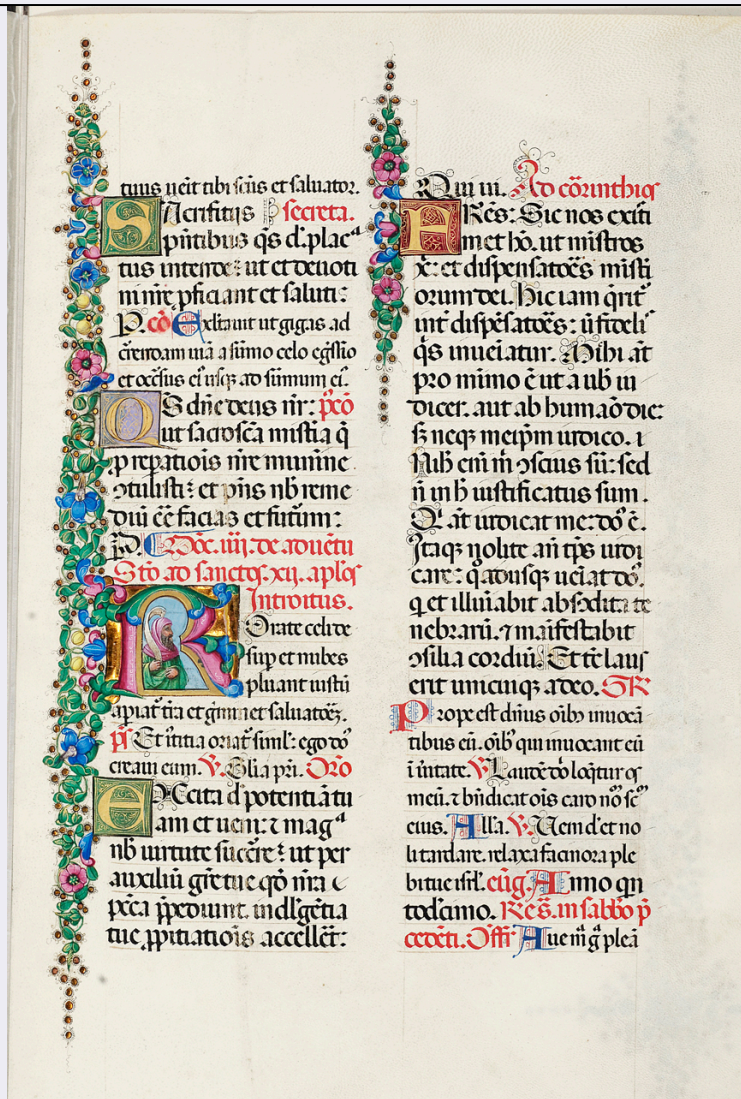 tuus ueit tibi scūs et saluator.
Sacrifitiis secreta.
pntibus qs d. placa
tus intende: ut et deuoti
ni nre pficiant et saluti:
P. cō Exltauit ut gigas ad
crrendam uiā a sūmo celo egssio
et occsus ei usq ad sūmum ei.
Qs dne deus nr: pcō
ut sacrosca mistia q̄
p repatiois nre munine
ɔtulisti: et pns nb reme
diū ēē facias et futūm:
p. d. Dōc. iiij. de aduētu
Stō ad sanctos. xij. aplos
Introitus.
Rorate celi de
sup et nubes
pluant iustū
apiat tra et gminet saluatorē.
ps Et iūtitia oriat siml: ego dō
creaui eum. V. Glia pri. Oro
Excita d potentiā tu
am et ueni: ⁊ maga
nb uirtute succre: ut per
auxiliū grē tue qd nra
pcca ppediunt. indlgētia
tue ppitiatiois acceleret:
Qui ui. Ad corinthios
Frēs: Sic nos exiti
met hō. ut mistros
xr: et dispensatoēs misti
orum dei. Hic iam qrit
int dispēsatoēs: ū fideli
qs inueiatur. Mihi āt
pro mimo ē ut a ub iu
dicer. aut ab humāo die:
s neq meipm iudico.
Nih eni m ɔscius sū: sed
n in h iustificatus sum.
Q āt iudicat me: dō ē.
Itaq nolite añ tps iudi
care: q adusq ueiat dō.
q et illuiabit absɔdita te
nebrarū. ⁊ māifestabit
ɔsilia cordiū. Et tē laus
erit unicuiq a deo. GR
Prope est dñius oibʒ inuocā
tibus eū. oibʒ qui inuocant eū
ī ūitate. V Laudē dō loqtur os
meū. ⁊ bndicat ois caro nō sc
eius. Alla. V. Ueni d et no
li tardare. relaxa facinora ple
bi tue isrl. eūg. Anno qn
todecimo. Reqs. in sabbo p
cedēti. Offr Aue m g pleā